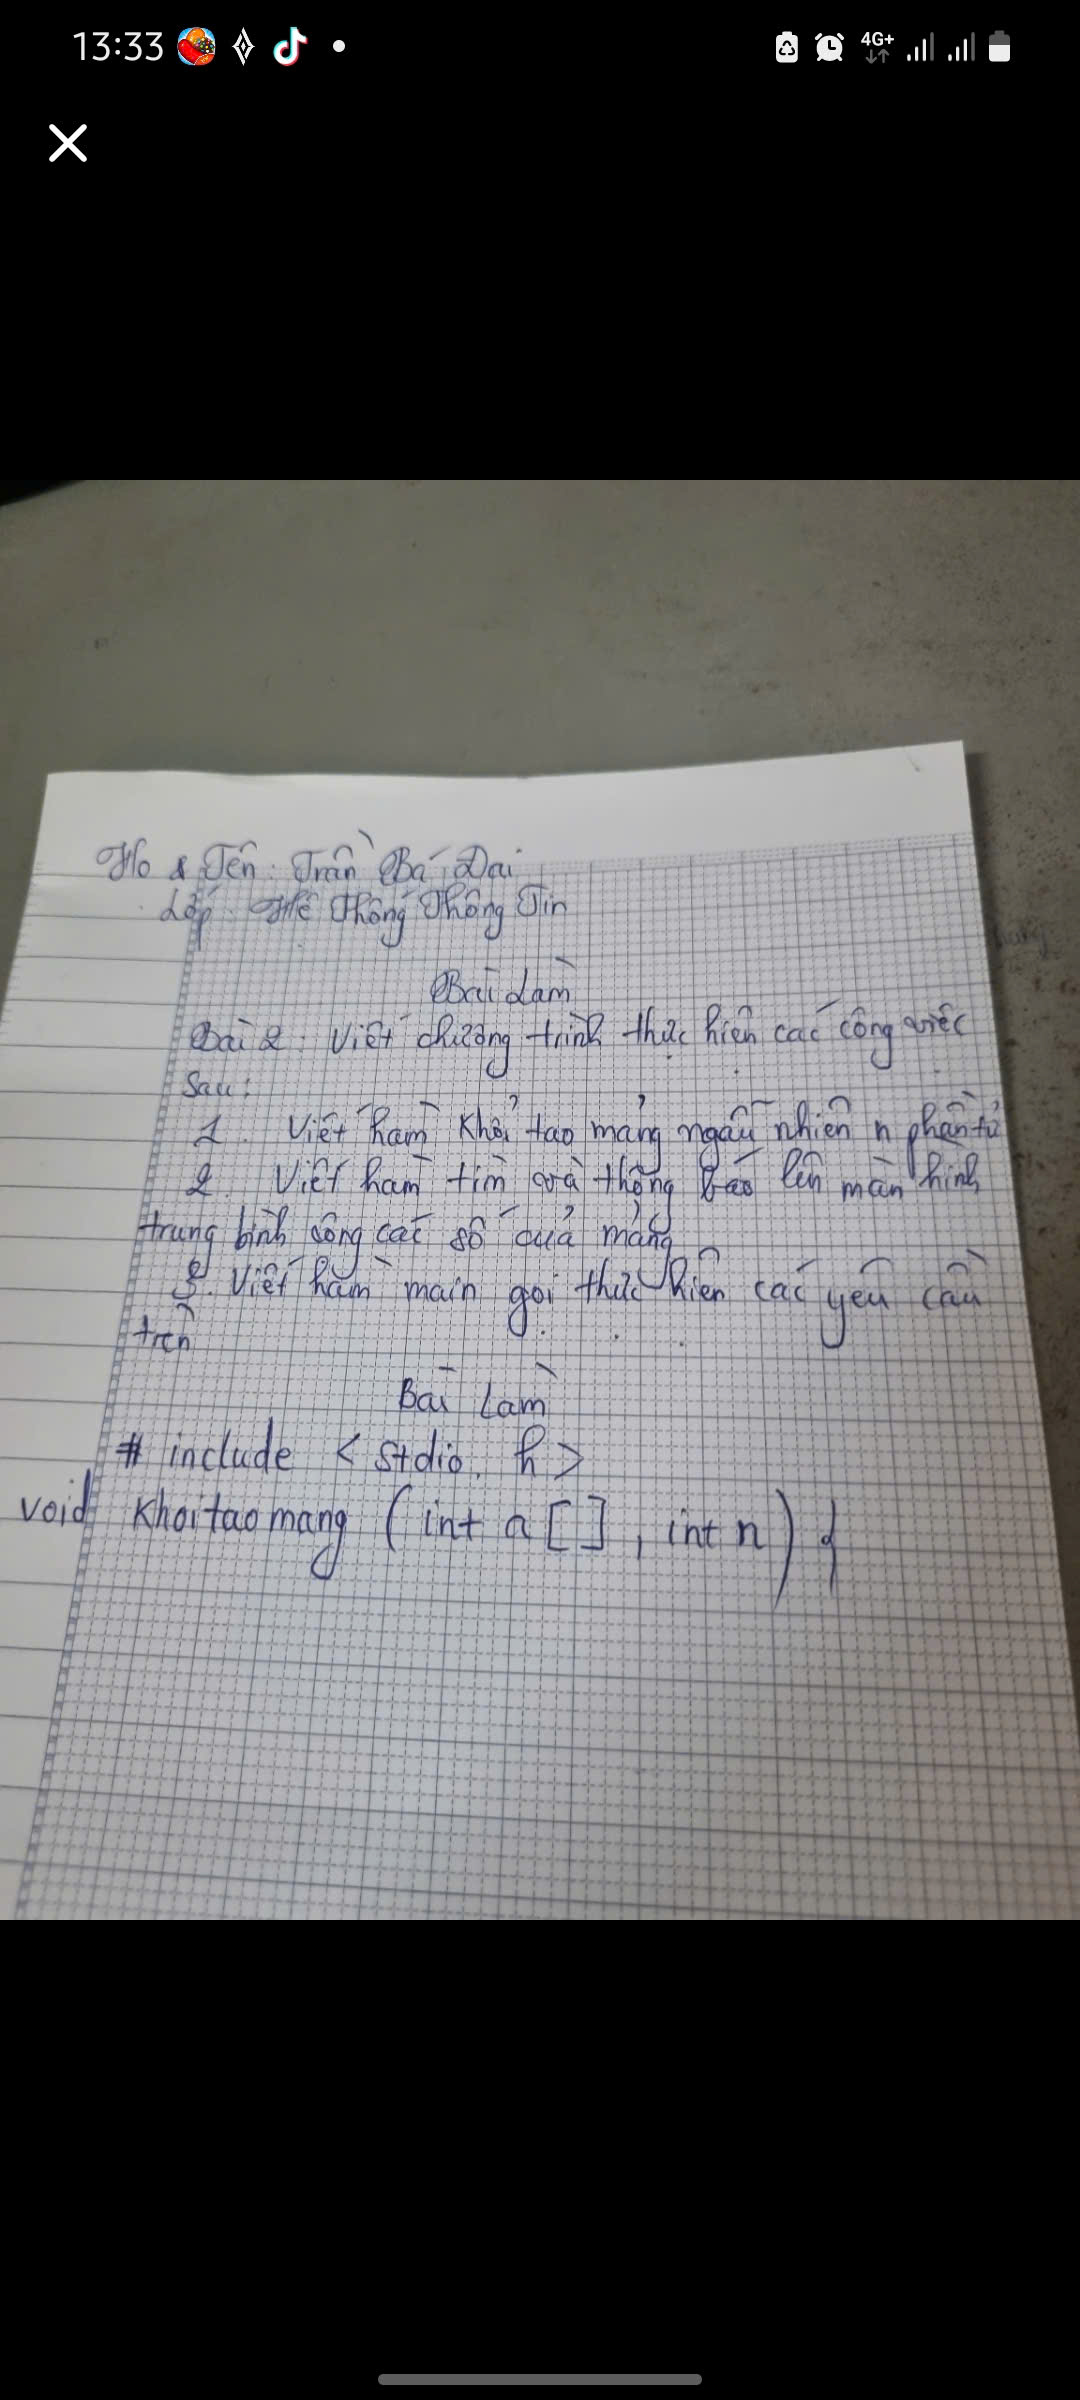 13:33
4G+
Họ & Tên: Trần Bá Đại
Lớp: Hệ Thống Thông Tin
Bài Làm
Bài 2: Viết chương trình thực hiện các công việc
sau:
1. Viết hàm khởi tạo mảng ngẫu nhiên n phần tử
2. Viết hàm tìm và thông báo lên màn hình
trung bình cộng các số của mảng
3. Viết hàm main gọi thực hiện các yêu cầu
trên
Bài Làm
# include < stdio. h >
void khoitaomang (int a [ ] , int n) {